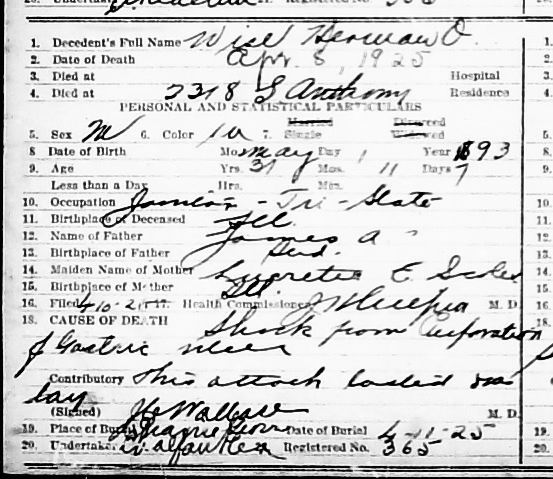 1. Decedent's Full Name Wise Herman O.
2. Date of Death Apr. 8, 1925
3. Died at Hospital
4. Died at 2318 S Anthony Residence
PERSONAL AND STATISTICAL PARTICULARS
5. Sex M 6. Color W 7. Married Single Divorced Widowed
8 Date of Birth Mo. May Day 1 Year 1893
9. Age Yrs. 31 Mos. 11 Days 7
Less than a Day Hrs. Min.
10. Occupation Janitor - Tri-State
11. Birthplace of Deceased Ill.
12. Name of Father James A
13. Birthplace of Father Ind.
14. Maiden Name of Mother Lucretia E.
15. Birthplace of Mother Ill.
16. Filed 4-10-25 17. Health Commissioner M. D.
18. CAUSE OF DEATH Shock from Perforation
of Gastric ulcer
Contributory This attack lasted one
day
(Signed) J C Wallace M. D.
19. Place of Burial Date of Burial 4-11-25
20. Undertaker Registered No. 365